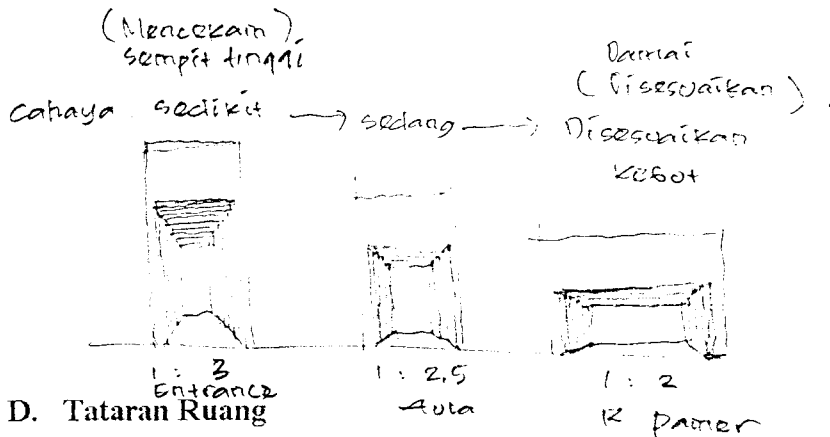 (Mencekam)
Sempit tinggi
Damai
(Disesuaikan)
cahaya sedikit → sedang → Disesuaikan
1 : 3
Entrance
1 : 2,5
Aula
1 : 2
R Pamer
D. Tataran Ruang